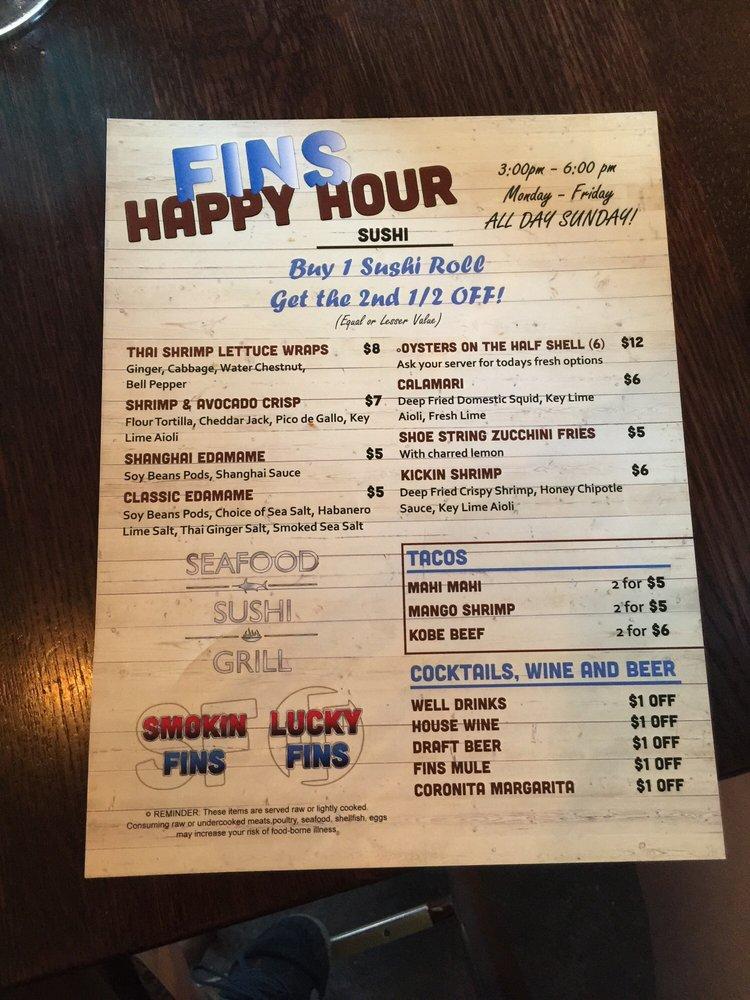 FINS
HAPPY HOUR
3:00pm - 6:00 pm
Monday - Friday
ALL DAY SUNDAY!
SUSHI
Buy 1 Sushi Roll
Get the 2nd 1/2 OFF!
(Equal or Lesser Value)
THAI SHRIMP LETTUCE WRAPS $8
Ginger, Cabbage, Water Chestnut,
Bell Pepper
SHRIMP & AVOCADO CRISP $7
Flour Tortilla, Cheddar Jack, Pico de Gallo, Key
Lime Aioli
SHANGHAI EDAMAME $5
Soy Beans Pods, Shanghai Sauce
CLASSIC EDAMAME $5
Soy Beans Pods, Choice of Sea Salt, Habanero
Lime Salt, Thai Ginger Salt, Smoked Sea Salt
°OYSTERS ON THE HALF SHELL (6) $12
Ask your server for todays fresh options
CALAMARI $6
Deep Fried Domestic Squid, Key Lime
Aioli, Fresh Lime
SHOE STRING ZUCCHINI FRIES $5
With charred lemon
KICKIN SHRIMP $6
Deep Fried Crispy Shrimp, Honey Chipotle
Sauce, Key Lime Aioli
SEAFOOD
SUSHI
GRILL
TACOS
MAHI MAHI 2 for $5
MANGO SHRIMP 2 for $5
KOBE BEEF 2 for $6
COCKTAILS, WINE AND BEER
WELL DRINKS $1 OFF
HOUSE WINE $1 OFF
DRAFT BEER $1 OFF
FINS MULE $1 OFF
CORONITA MARGARITA $1 OFF
SF
SMOKIN
FINS
LF
LUCKY
FINS
° REMINDER: These items are served raw or lightly cooked.
Consuming raw or undercooked meats,poultry, seafood, shellfish, eggs
may increase your risk of food-borne illness.